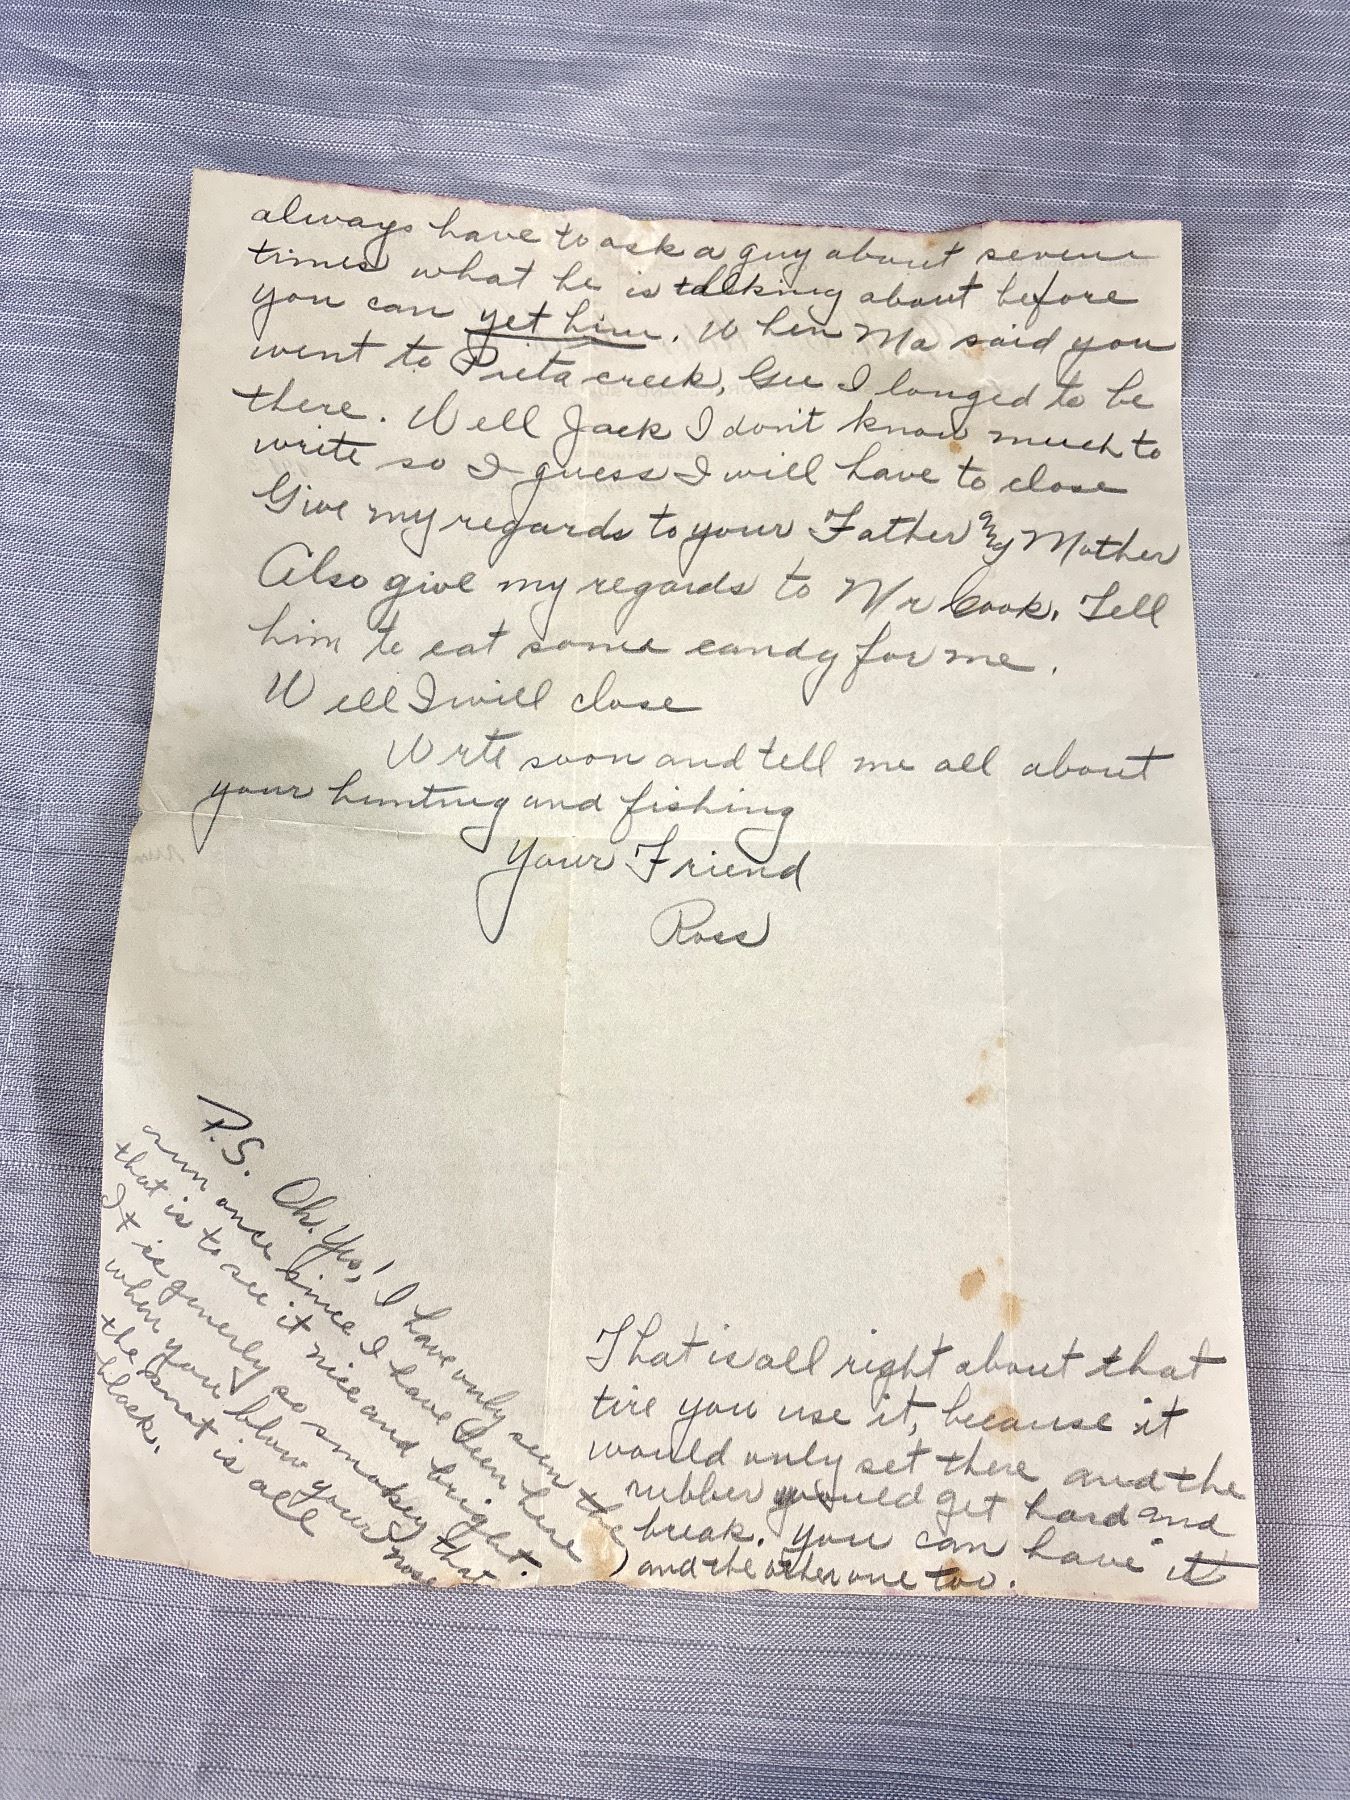 always have to ask a guy about sevene
times what he is talking about before
you can get him. When Ma said you
went to Prieta creek, Gee I longed to be
there. Well Jack I don't know much to
write so I guess I will have to close
Give my regards to your Father and Mother
Also give my regards to Mr Cook. Tell
him to eat some candy for me.
Well I will close
Wrte soon and tell me all about
your huntnig and fishing
Your Friend
Ross
P.S. Oh. Yes! I have only seen the
sun once since I have been here
that is to see it nice and bright.
It is generly so smokey that
when you blow your nose
the snot is all
black.
That is all right about that
tire you use it, because it
would only set there and the
rubber would get hard and
break. You can have it
and the other one too.